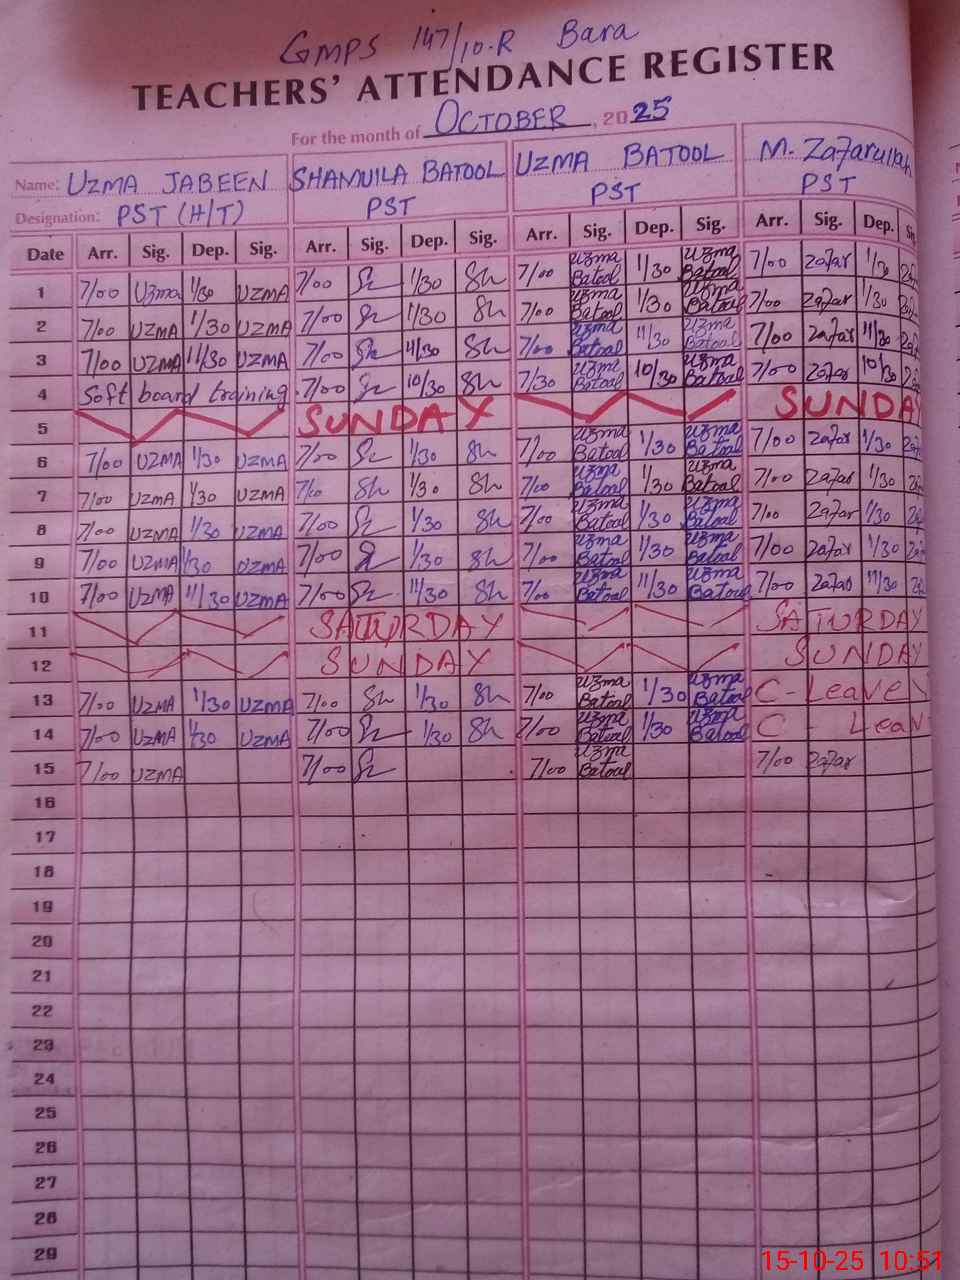 GMPS 147/10-R Bara
TEACHERS' ATTENDANCE REGISTER
For the month of OCTOBER, 2025
Name: UZMA JABEEN SHAMUILA BATOOL UZMA BATOOL M. Zafarullah
Designation: PST (H/T) PST PST PST
Date Arr. Sig. Dep. Sig. Arr. Sig. Dep. Sig. Arr. Sig. Dep. Sig. Arr. Sig. Dep.
1 7/00 Uzma 1/30 UZMA 7/00 Sh 1/30 Sh 7/00 Uzma Batool 1/30 Uzma Batool 7/00 Zafar 1/30
2 7/00 UZMA 1/30 UZMA 7/00 Sh 1/30 Sh 7/00 Uzma Batool 1/30 Uzma Batool 7/00 Zafar 1/30
3 7/00 UZMA 11/30 UZMA 7/00 Sh 11/30 Sh 7/00 Uzma Batool 11/30 Uzma Batool 7/00 Zafar 11/30
4 Soft board training 7/00 Sh 10/30 Sh 7/30 Uzma Batool 10/30 Uzma Batool 7/00 Zafar 10/30
5 SUNDAY SUNDAY
6 7/00 UZMA 1/30 UZMA 7/00 Sh 1/30 Sh 7/00 Uzma Batool 1/30 Uzma Batool 7/00 Zafar 1/30
7 7/00 UZMA 1/30 UZMA 7/00 Sh 1/30 Sh 7/00 Uzma Batool 1/30 Uzma Batool 7/00 Zafar 1/30
8 7/00 UZMA 1/30 UZMA 7/00 Sh 1/30 Sh 7/00 Uzma Batool 1/30 Uzma Batool 7/00 Zafar 1/30
9 7/00 UZMA 1/30 UZMA 7/00 Sh 1/30 Sh 7/00 Uzma Batool 1/30 Uzma Batool 7/00 Zafar 1/30
10 7/00 UZMA 11/30 UZMA 7/00 Sh 11/30 Sh 7/00 Uzma Batool 11/30 Uzma Batool 7/00 Zafar 11/30
11 SATURDAY SATURDAY
12 SUNDAY SUNDAY
13 7/00 UZMA 1/30 UZMA 7/00 Sh 1/30 Sh 7/00 Uzma Batool 1/30 Uzma Batool C-Leave
14 7/00 UZMA 1/30 UZMA 7/00 Sh 1/30 Sh 7/00 Uzma Batool 1/30 Uzma Batool C - Leav
15 7/00 UZMA 7/00 Sh 7/00 Uzma Batool 7/00 Zafar
16
17
18
19
20
21
22
23
24
25
26
27
28
29
15-10-25 10:51